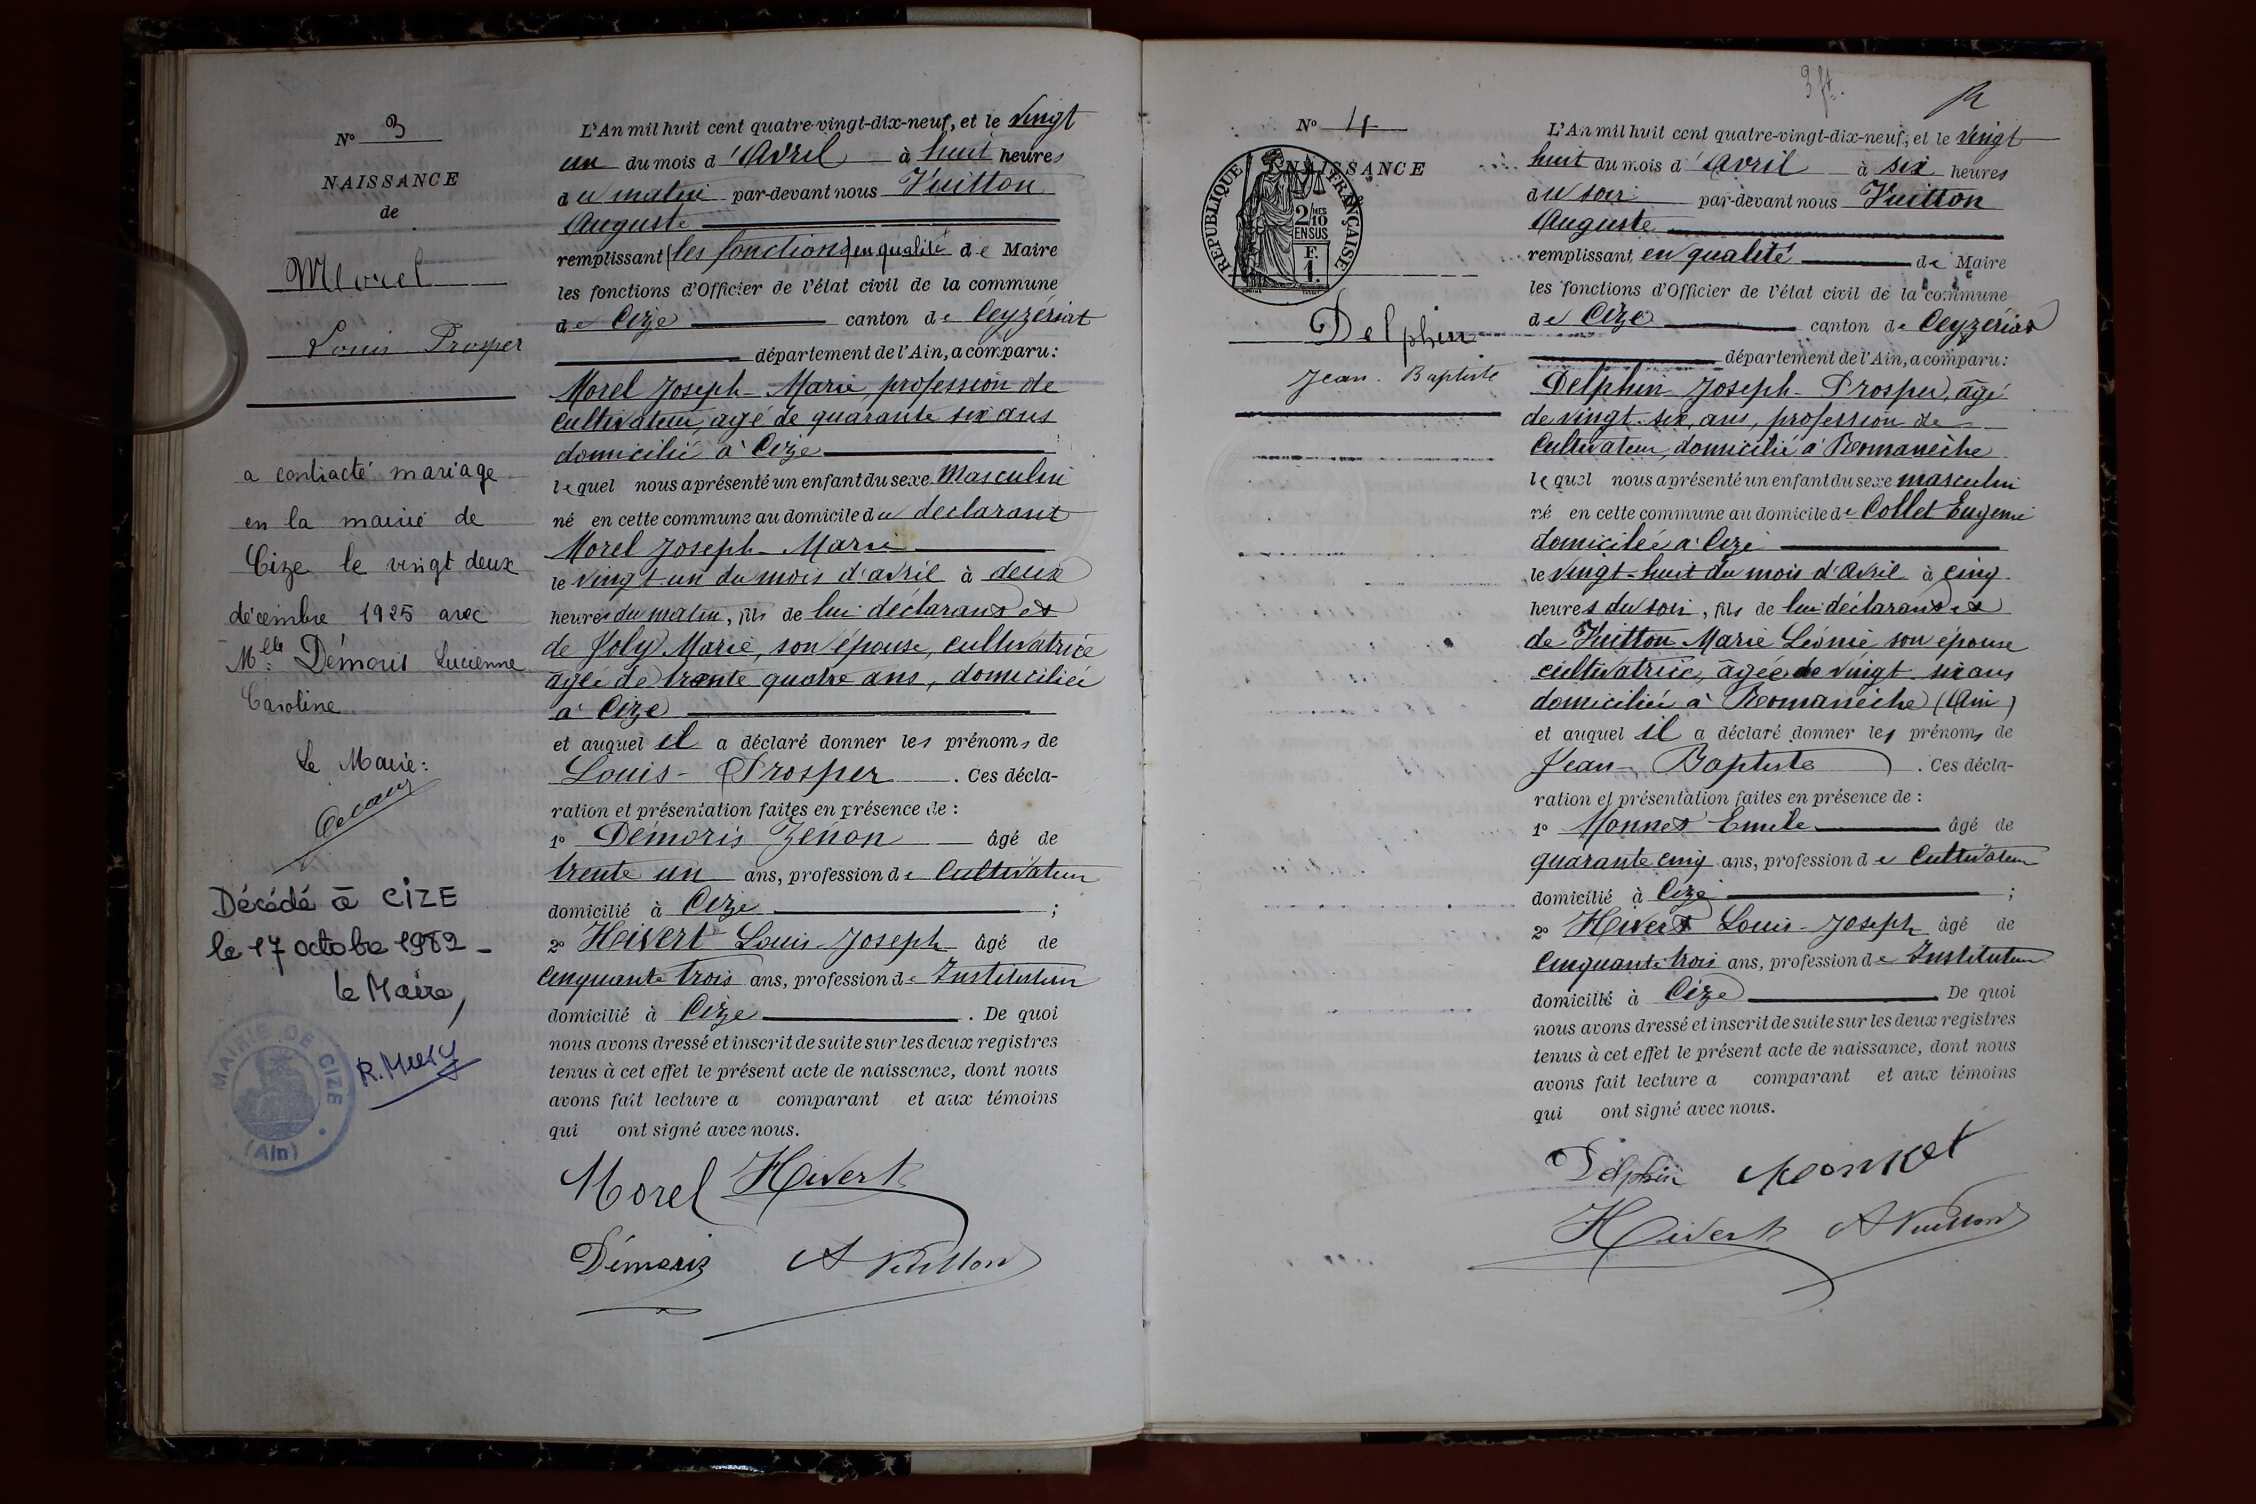 N° 3
NAISSANCE
de
Morel
Louis Prosper
a contracté mariage
en la mairie de
Cize le vingt deux
décembre 1925 avec
Mlle Démoris Lucienne
Caroline
Le Maire:
Décédé à CIZE
le 17 octobre 1982 -
le Maire,
MAIRIE DE CIZE
(Ain)
L'An mil huit cent quatre-vingt-dix-neuf, et le vingt
un du mois d'Avril à huit heures
du matin par-devant nous Vuitton
Auguste
remplissant (les fonctions) en qualité de Maire
les fonctions d'Officier de l'état civil de la commune
de Cize canton de Ceyzériat
département de l'Ain, a comparu:
Morel Joseph-Marie, profession de
cultivateur, agé de quarante six ans
domicilié à Cize
lequel nous a présenté un enfant du sexe Masculin
né en cette commune au domicile du declarant
Morel Joseph-Marie
le vingt un du mois d'avril à deux
heures du matin, fils de lui déclarant et
de Joly Marie, son épouse, cultivatrice
agée de trente quatre ans, domiciliée
à Cize
et auquel il a déclaré donner les prénoms de
Louis-Prosper. Ces décla-
ration et présentation faites en présence de:
1° Démoris Zénon âgé de
trente un ans, profession de Cultivateur
domicilié à Cize;
2° Hivert Louis-Joseph âgé de
cinquante trois ans, profession de Instituteur
domicilié à Cize. De quoi
nous avons dressé et inscrit de suite sur les deux registres
tenus à cet effet le présent acte de naissance, dont nous
avons fait lecture a comparant et aux témoins
qui ont signé avec nous.
Morel Hivert
Démoris A Vuitton
3 ft.
N° 4
NAISSANCE
RÉPUBLIQUE FRANÇAISE
2/10 EN SUS
F. 1
Delphin
Jean-Baptiste
L'An mil huit cent quatre-vingt-dix-neuf, et le vingt
huit du mois d'avril à six heures
du soir par-devant nous Vuitton
Auguste
remplissant en qualité de Maire
les fonctions d'Officier de l'état civil de la commune
de Cize canton de Ceyzériat
département de l'Ain, a comparu:
Delphin Joseph-Prosper, âgé
de vingt-six, ans, profession de
Cultivateur, domicilié à Romanèche
lequel nous a présenté un enfant du sexe masculin
né en cette commune au domicile de Collet Eugenie
domiciliée à Cize
le vingt-huit du mois d'avril à cinq
heures du soir, fils de lui déclarant et
de Vuitton Marie Léonie son épouse
cultivatrice, âgée de vingt six ans
domiciliée à Romanèche (Ain)
et auquel il a déclaré donner les prénoms de
Jean-Baptiste. Ces décla-
ration et présentation faites en présence de:
1° Monnet Emile âgé de
quarante cinq ans, profession de Cultivateur
domicilié à Cize;
2° Hivert Louis-Joseph âgé de
cinquante trois ans, profession de Instituteur
domicilié à Cize De quoi
nous avons dressé et inscrit de suite sur les deux registres
tenus à cet effet le présent acte de naissance, dont nous
avons fait lecture a comparant et aux témoins
qui ont signé avec nous.
Delphin Monnet
Hivert A Vuitton